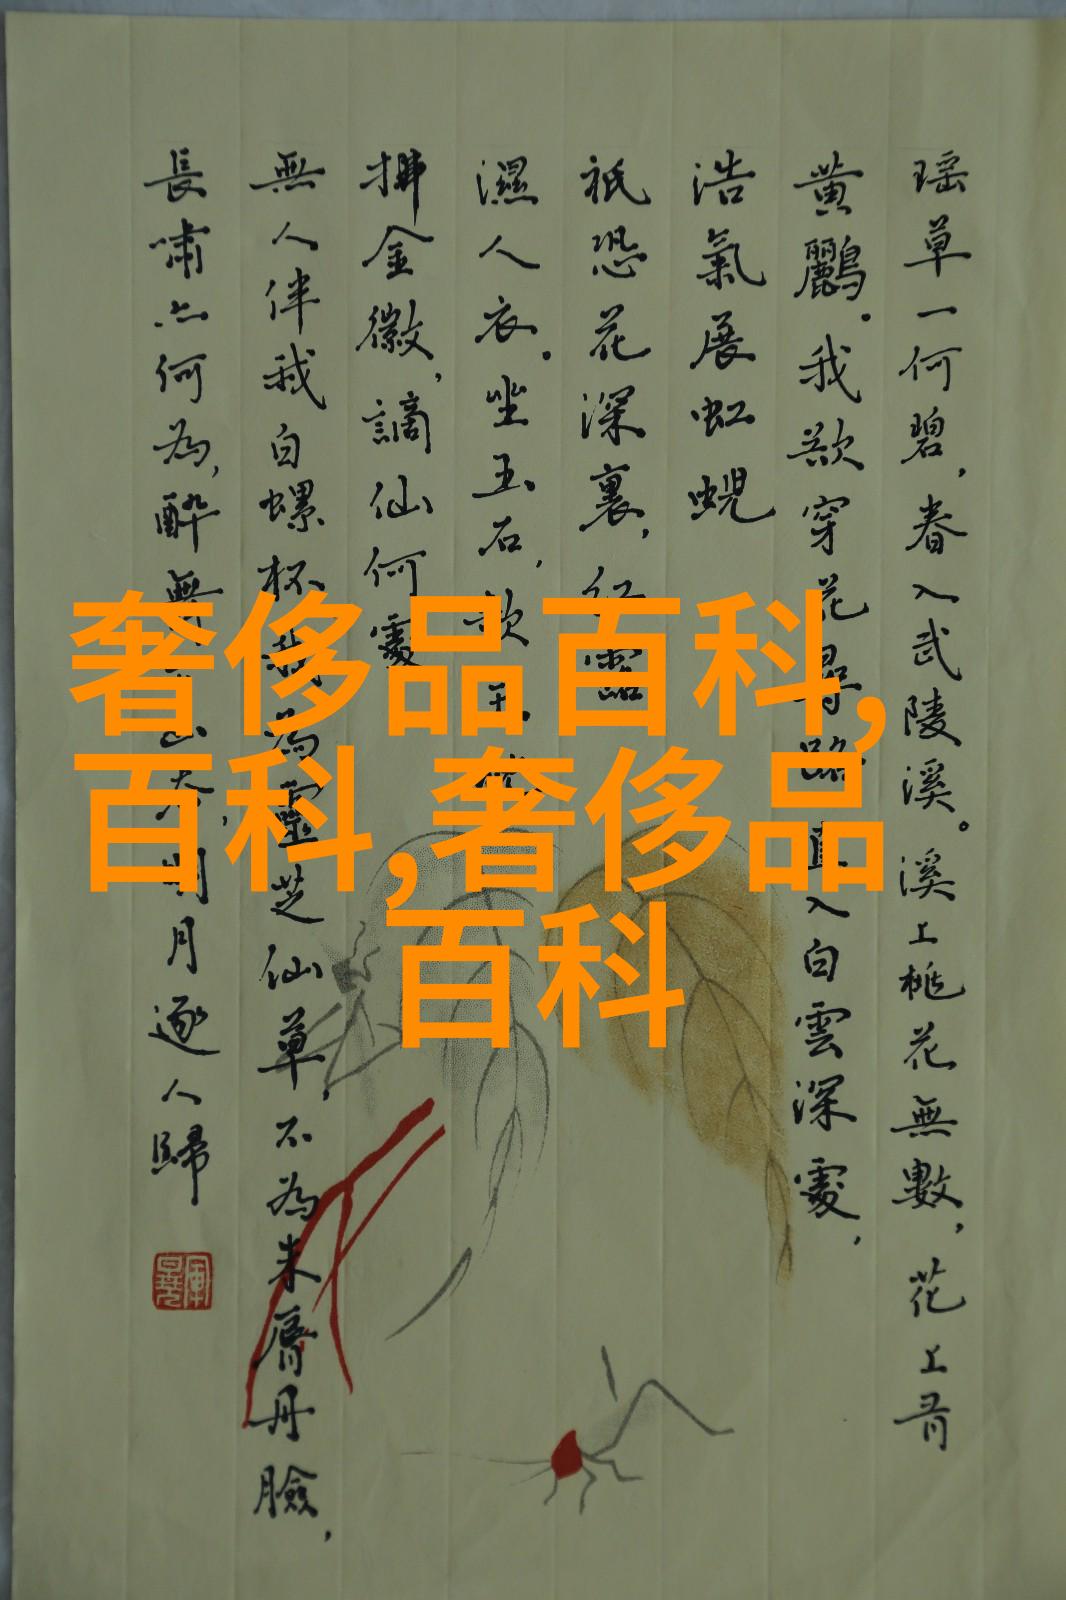 瑶草一何碧，春入武陵溪。溪上桃花無數，花上有
黄鸝。我欲穿花尋路，直入白雲深處，
浩氣展虹蜺
祇恐花深裏，紅露
濕人衣。坐玉石，欹玉枕
拂金徽，謫仙何處
無人伴我白螺杯我為靈芝仙草，不為朱脣丹臉，
長嘯亦何為，醉舞下山去，明月逐人歸
奢侈品百科,
百科,奢侈品
百科